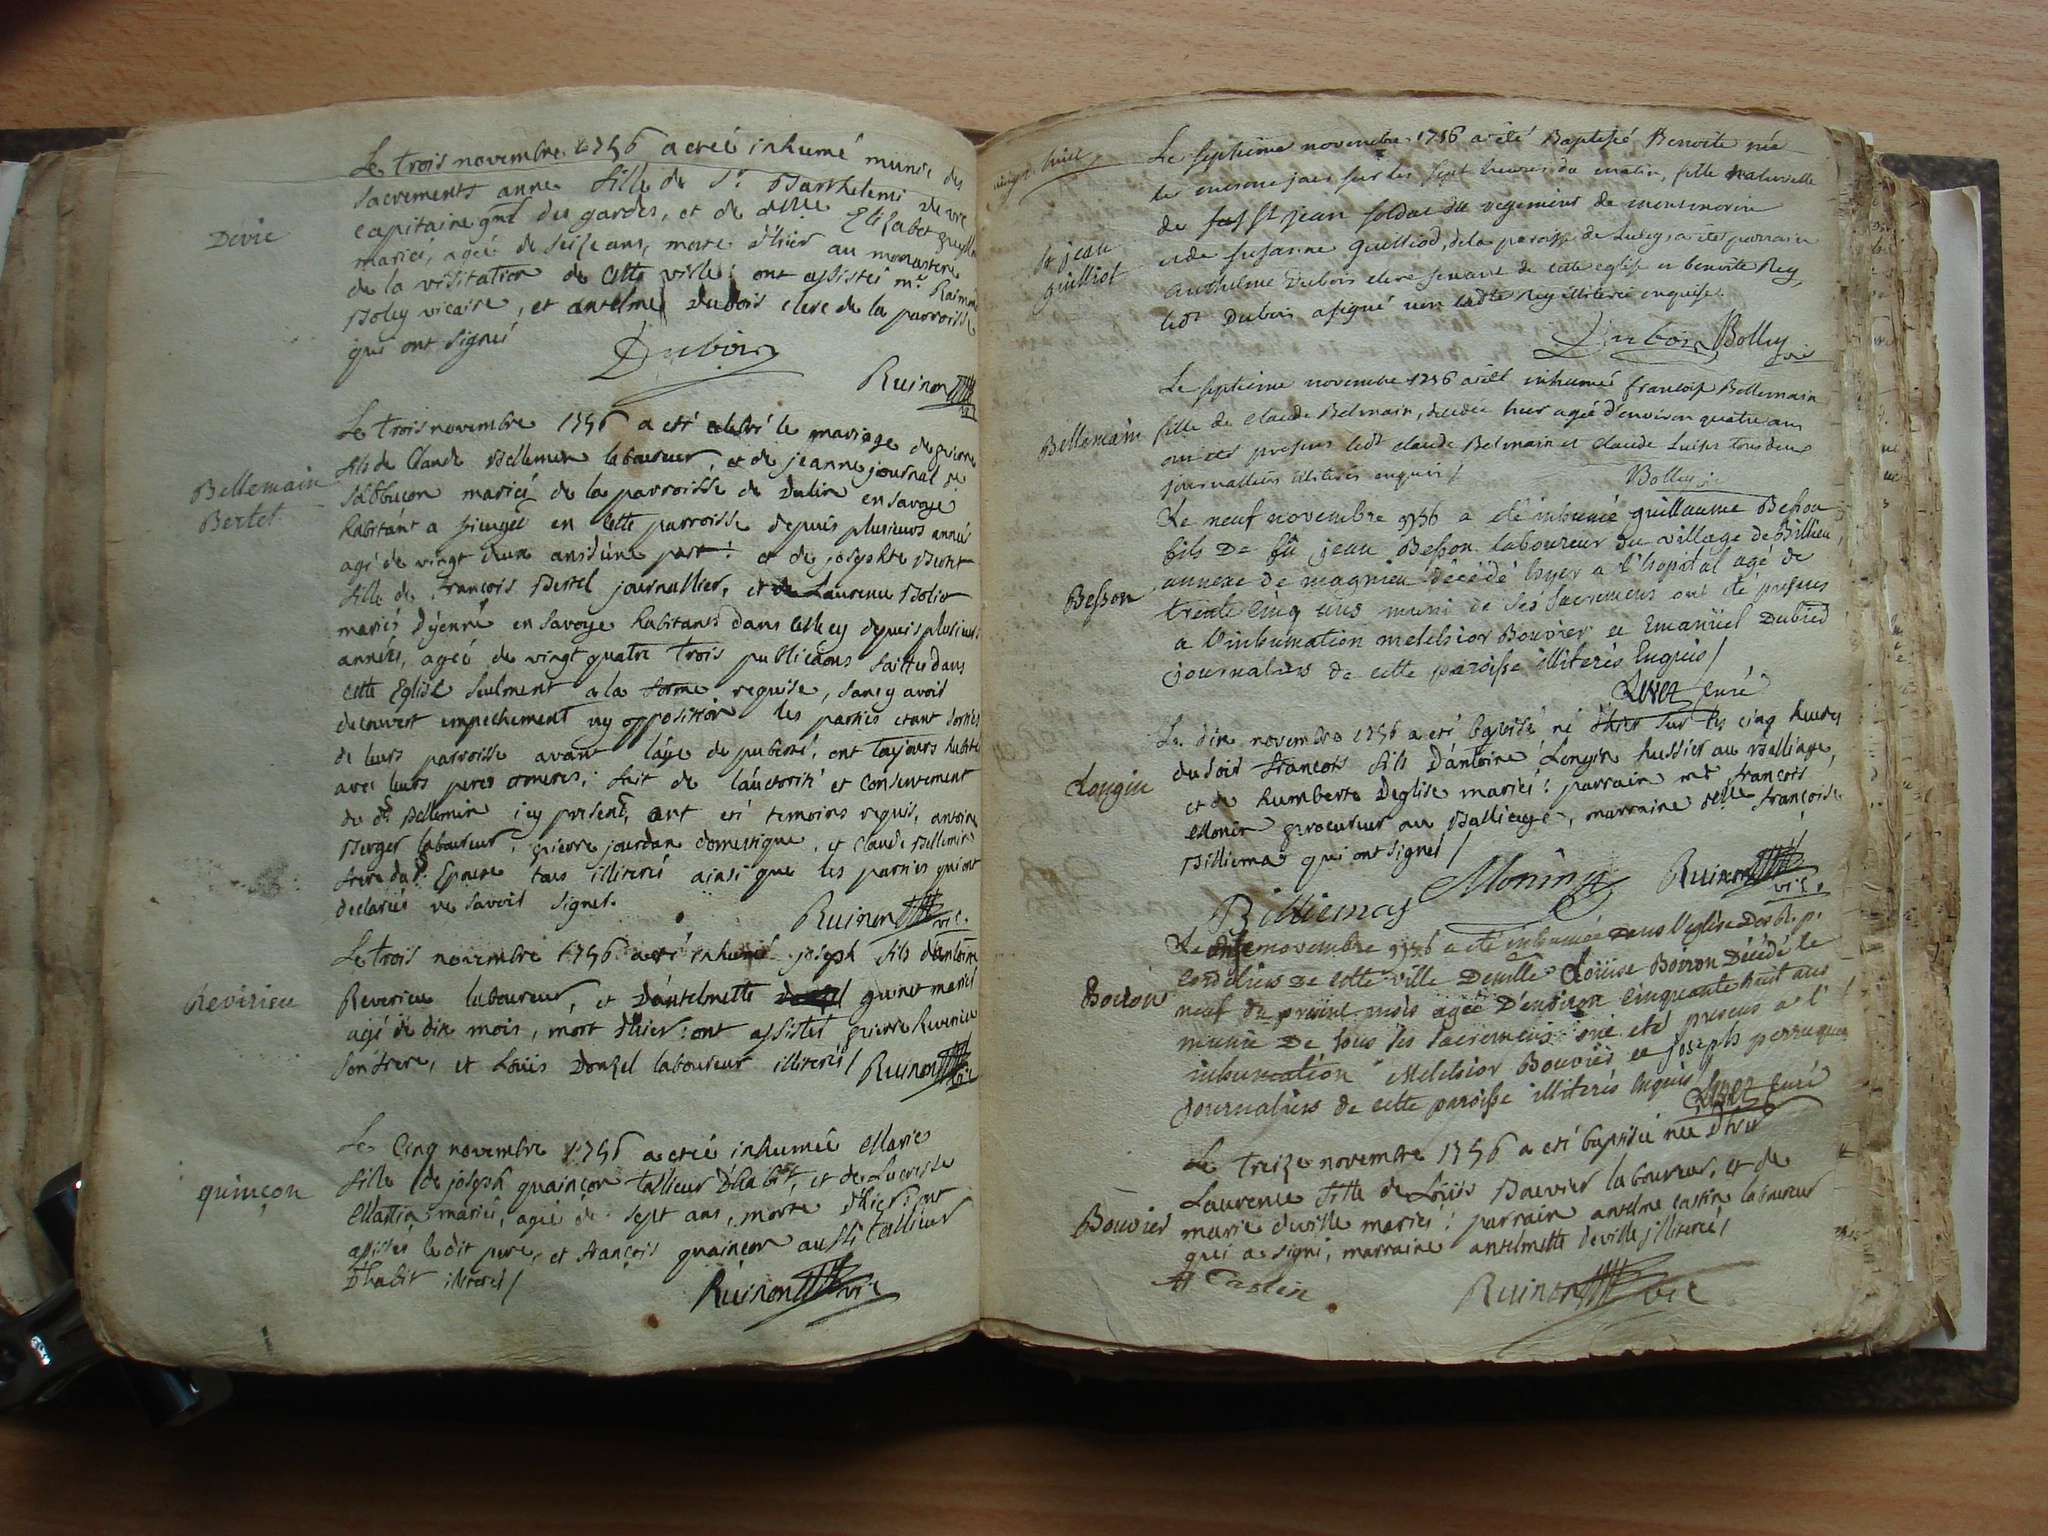 Le trois novembre 1756 a etté inhumé munie des
sacrements anne fille de Sr Barthelemi Devie
capitaine gnal des gardes, et de dlle Elisabet
mariés, agée de seize ans, morte d'hier au monastere
de la visitation de cette ville: ont assistés mr Raimon
Boley vicaire, et antelme Dubois clerc de la parroisse
qui ont signés
Devie
Dubois
Ruinon vic
Le trois novembre 1756 a eté celebré le mariage de pierre
fils de Claude Bellemin laboureur, et de jeanne journal
mariés de la parroisse de Dulin en savoye
Bellemain
Bertet
habitant a en cette parroisse depuis plusieurs années
agé de vingt d'une part: et de josephte Bertet
fille de françois Bertet journallier, et de Laurence Bolier
mariés d'yenne en savoye habitants dans cette depuis plusieurs
années, agée de vingt quatre trois publicaons faittes dans
cette Eglise seulment a la forme requise, sans y avoir
decouvert empechement ny opposition les parties etant sorties
de leurs parroisse avant l'age de puberté, ont toujours habité
avec leurs peres et meres: fait de l'auctorité et consentement
du dt Bellemin icy present, ont eté temoins requis, antoine
Berger laboureur, pierre jourdan domestique, et Claude Bellemin
frere dud. Epoux tous illiterés ainsi que les parties qui ont
declarés ne savoir signer.
Ruinon vic.
Le trois novembre 1756 a eté inhumé joseph fils d'antoine
Revirieu
Reverieu laboureur, et d'antelmette guinet mariés
agé de dix mois, mort d'hier: ont assistés pierre Reverieu
son frere, et Loüis Donzel laboureur illiterés/ Ruinon vic
Le Cinq novembre 1756 a etté inhumée Marie
quinçon
fille de joseph quainçon tallieur D'habit, et de Lucresse
Martin mariés, agée de sept ans, morte d'hier: ont
assistés le dit pere, et françois quainçon aussi tallieur
D'habit illiterés/
Ruinon vic
vingt huit
Le septieme novembre 1756 a été Baptisé Benoite née
le meme jour sur les sept heures du matin, fille naturelle
de St jean soldat du regiment de montmorin
St jean
guilliot
et de susanne guilliod, de la paroisse de Luceys a été parrain
Anthelme Dubois clerc servant de cette eglise et benoite Rey,
ledt Dubois a signé non ladte Rey illiterée enquise.
Dubois Bolley vic
Le septieme novembre 1756 a été inhumée françoise Bellemain
Bellemain
fille de Claude Belmain, decedée hier agée d'environ quatre ans
ont été presens ledt Claude Belmain et Claude tous deux
journalliers illiterés enquis/
Bolley
Le neuf novembre 1756 a eté inhumé guillaume Besson
fils De fû jean Besson laboureur du village de Billieu
Besson
annexe de magnieu décédé hyer a l'hopital agé de
trente Cinq ans muni de ses sacremens ont été presens
a l'inhumation melchior Bouvier et Emanüel Dubied
journaliers de cette paroisse illiterés Enquis/
curé
Le dix novembre 1756 a eté baptisé né d'hier sur les cinq heures
du soir françois fils d'antoine Longin hussier au Balliage,
Longin
et de humberte Deglise mariés: parrain mr françois
Monin procureur au Balliage, marraine delle françoise
Billiemaz qui ont signés/
Billiemas Monin Ruinon vic.
Le onze novembre 1756 a été inhumée dans l'eglise Des R. p.
cordeliers De cette ville Demlle Loüise Boiron Décédé le
Boiron
neuf du present mois agée D'environ Cinquante huit ans
munie De tous ses sacremens ont été presens a l'
inhumation Melchior Bouvier et joseph perruquet
journaliers de cette paroisse illiterés enquis
curé
Le treize novembre 1756 a eté baptisée née d'hier
Laurence fille de Loüis Bouvier laboureur, et de
Bouvier
marie deville mariés: parrain antelme castin laboureur
qui a signé, marraine antelmette deville illiterée/
A Castin
Ruinon vic